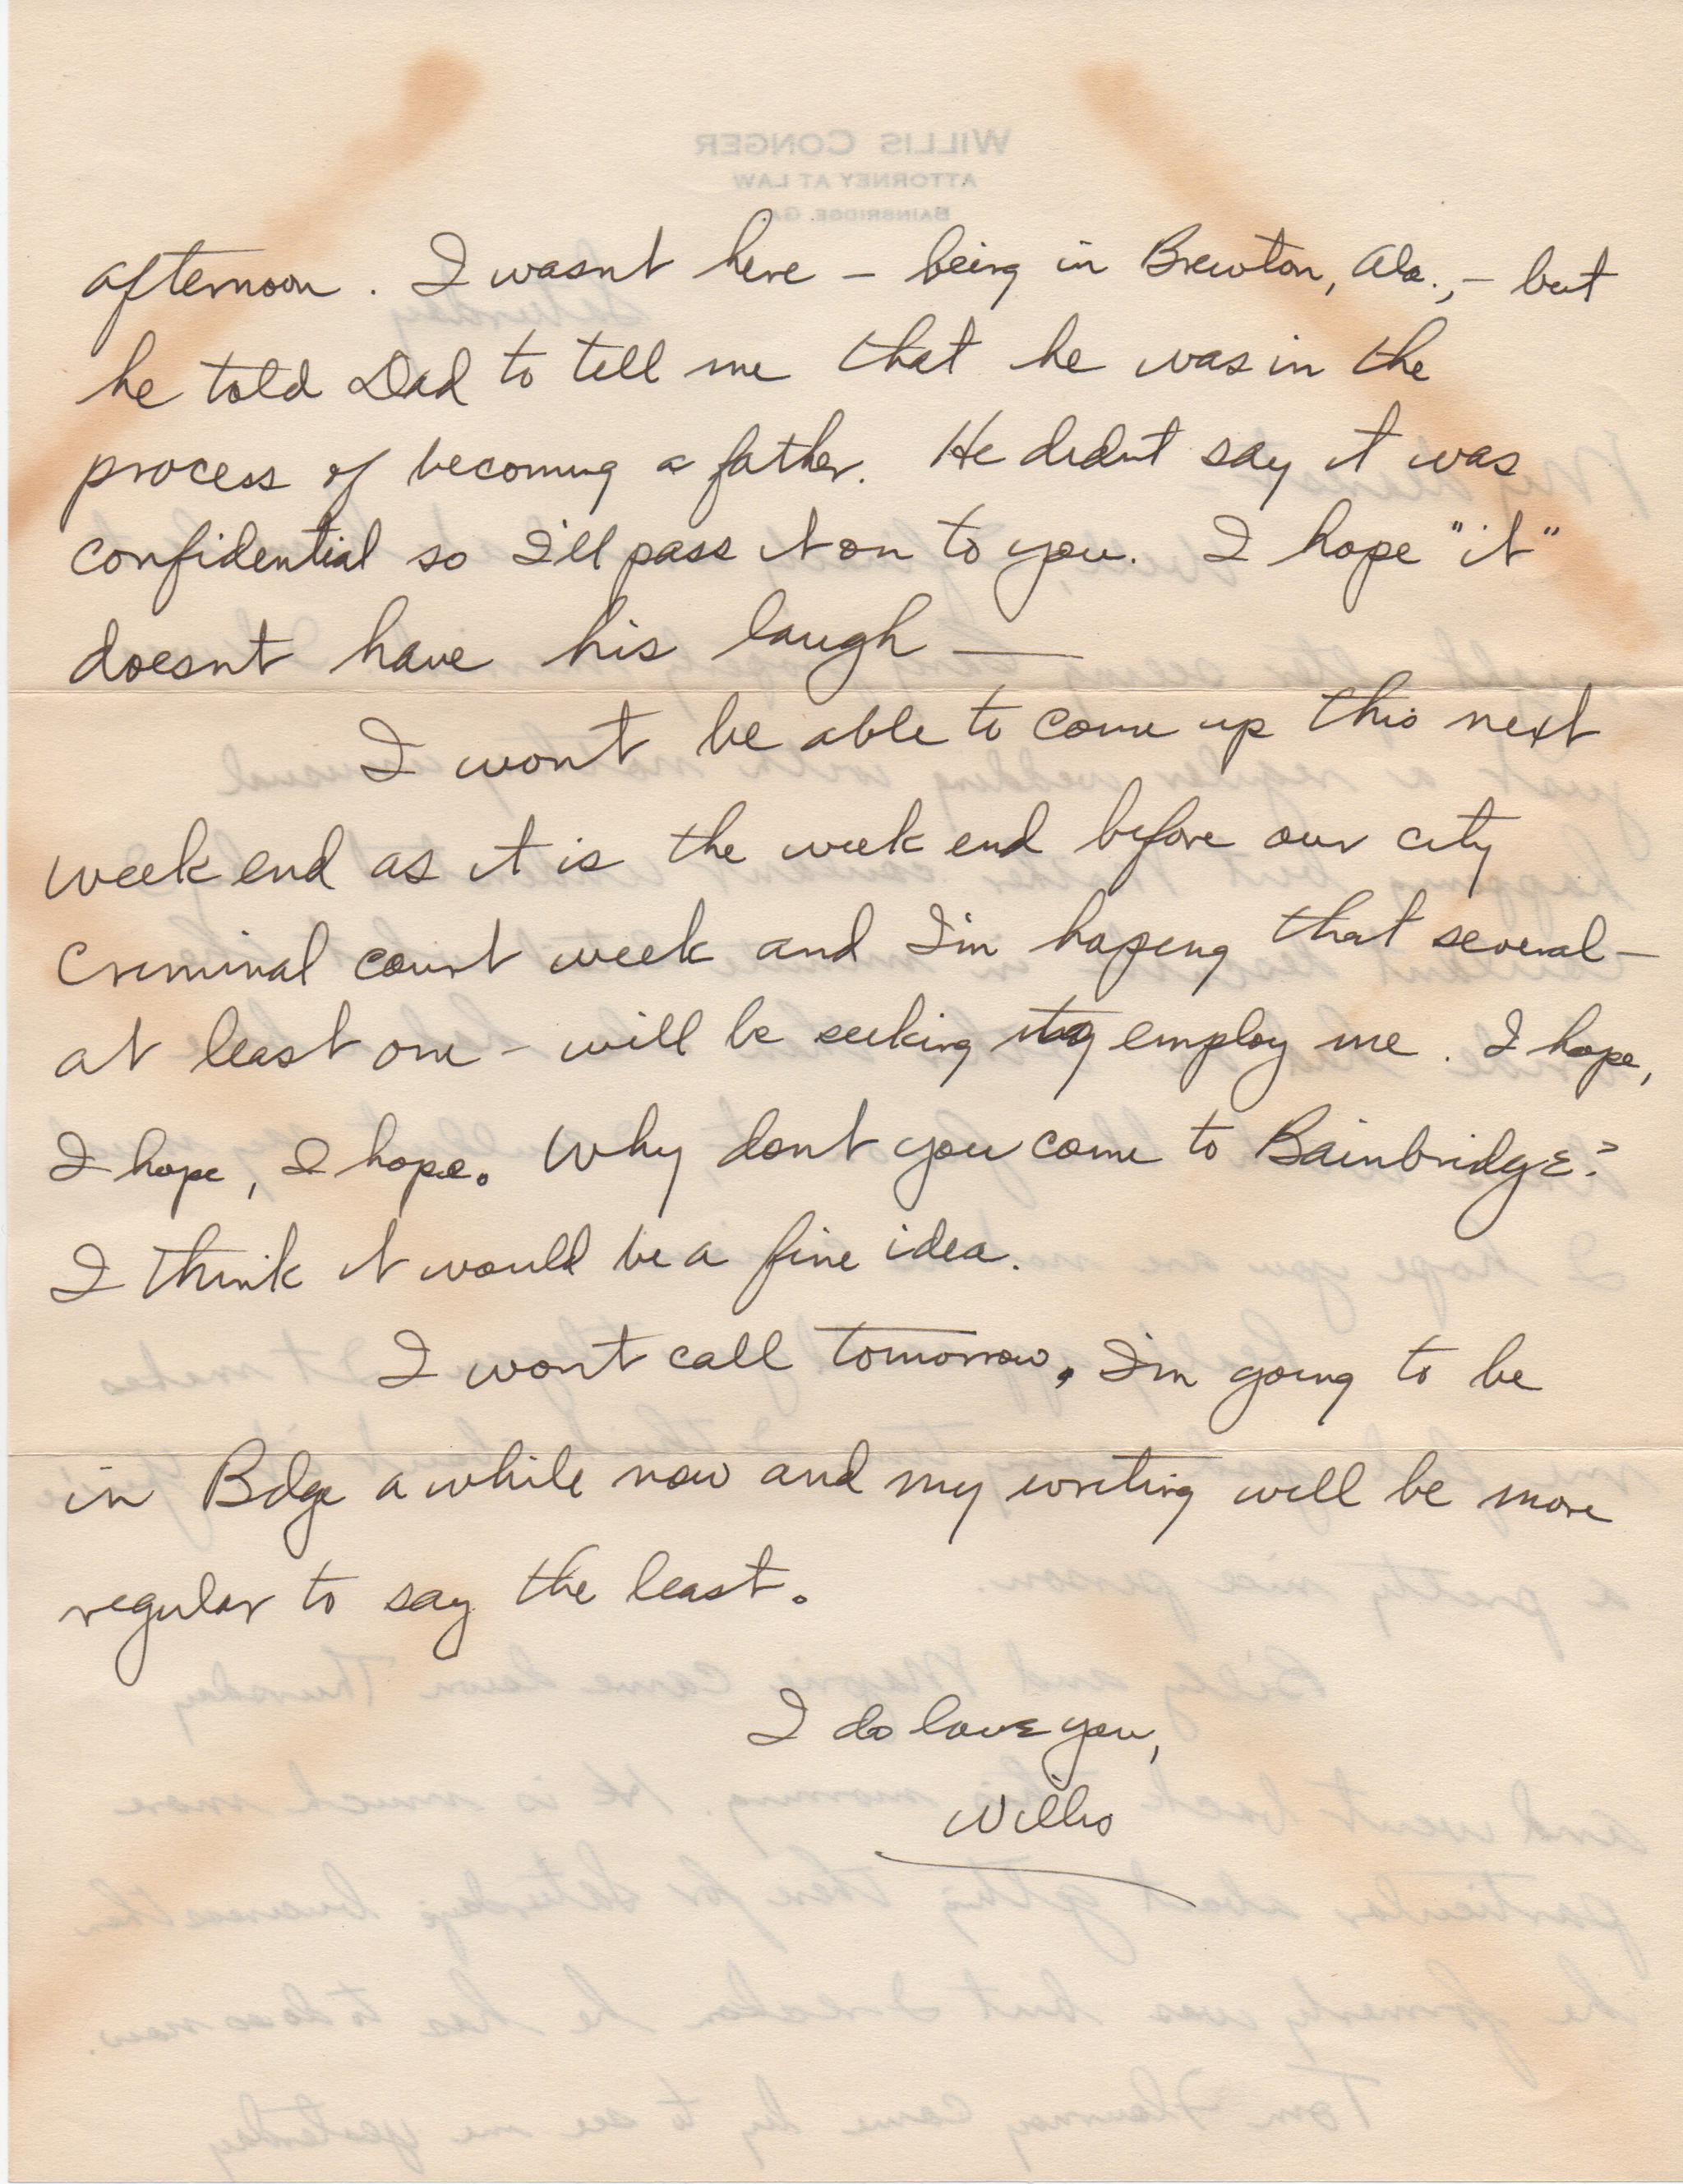 WILLIS CONGER
ATTORNEY AT LAW
BAINBRIDGE, GA.
afternoon. I wasnt here – being in Brewton, Ala., – but
he told Dad to tell me that he was in the
process of becoming a father. He didnt say it was
confidential so I'll pass it on to you. I hope "it"
doesnt have his laugh —
I wont be able to come up this next
week end as it is the week end before our city
Criminal court week and I'm hoping that several –
at least one – will be seeking to employ me. I hope,
I hope, I hope. Why dont you come to Bainbridge?
I think it would be a fine idea.
I wont call tomorrow. I'm going to be
in Bdge a while now and my writing will be more
regular to say the least.
I do love you,
Willis